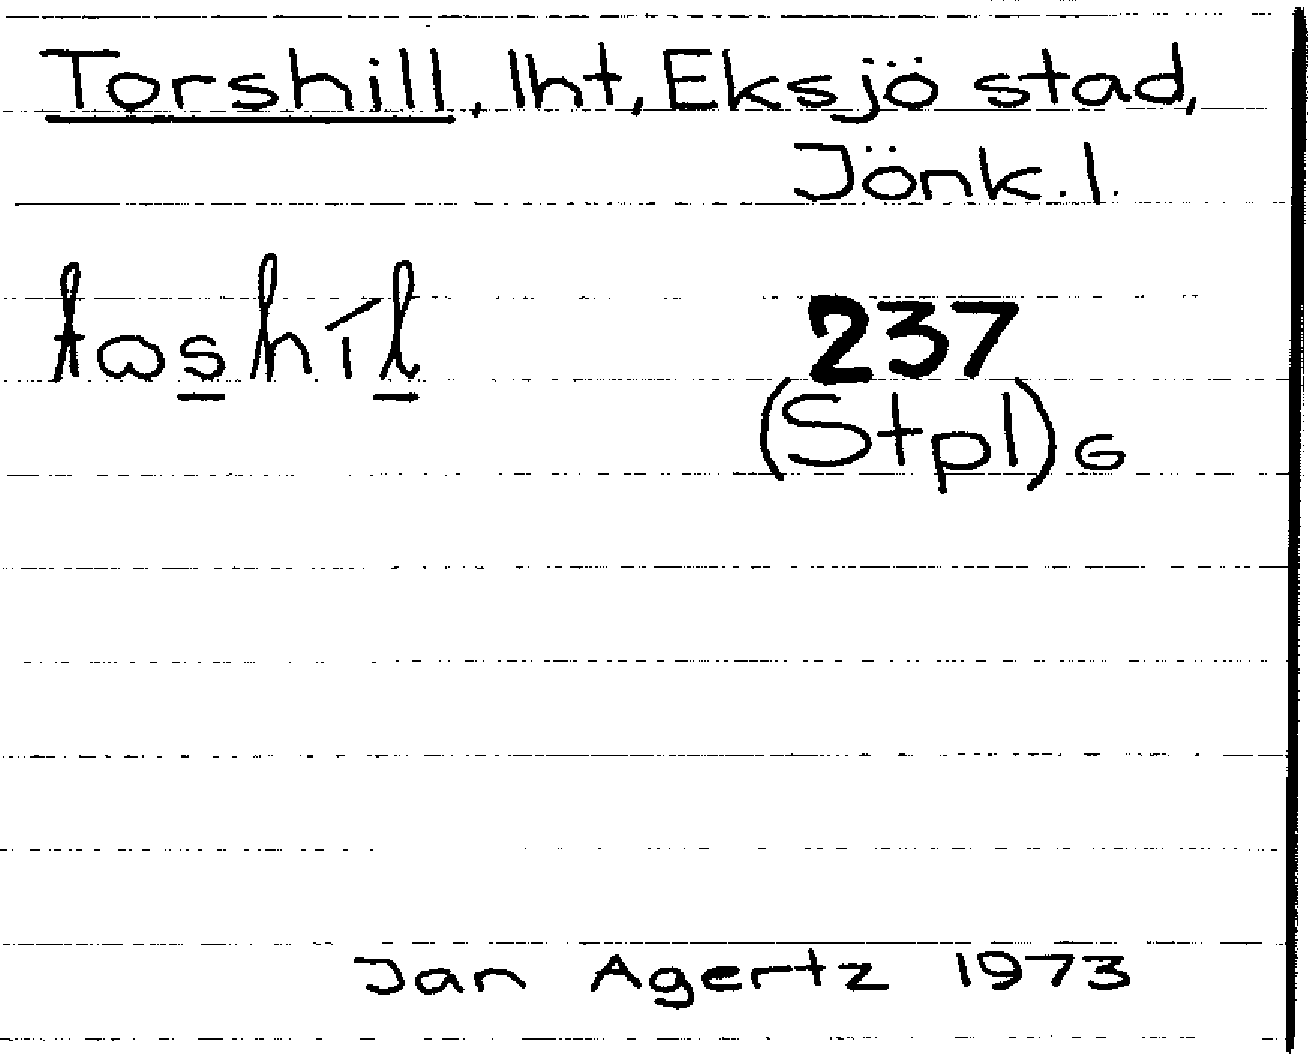 Torshill, lht, Eksjö stad,
Jönk.l.
237
(Stpl) G
Jan Agertz 1973